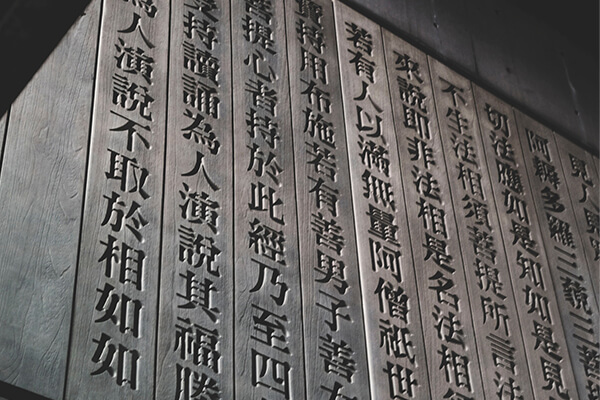 見人見
阿耨多羅三藐三菩
切法應如是知如是見
不生法相須菩提所言法
來說即非法相是名法相須
若有人以滿無量阿僧祇世
持用布施若有善男子善
菩提心者持於此經乃至四
受持讀誦為人演說其福勝
為人演說不取於相如如